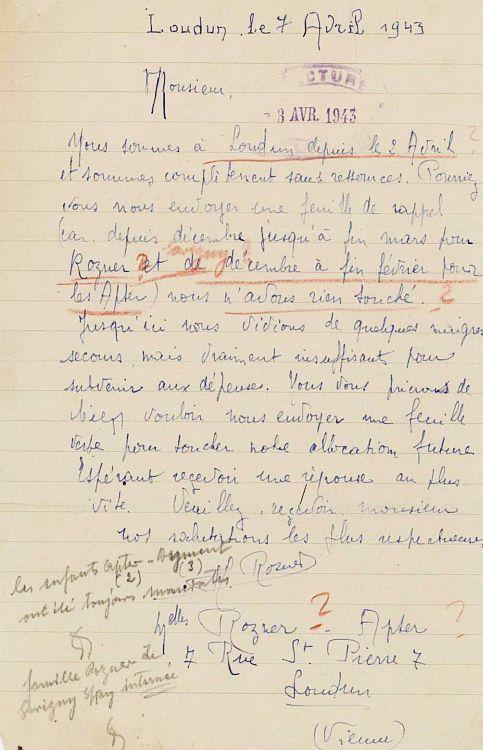 Loudun, le 7 Avril 1943
Monsieur,
CTURE
- 8 AVR. 1943
Nous sommes à Loudun depuis le 2 Avril ?
et sommes complètement sans ressources. Pourriez
vous nous envoyer une feuille de rappel
(car depuis décembre jusqu'à fin mars pour
Savigny
Rozner ? et de décembre à fin février pour
les Apter) nous n'avons rien touché. ?
Jusqu'ici nous vivions de quelques maigres
secours, mais vraiment insuffisants pour
subvenir aux dépenses. Nous vous prierons de
bien vouloir nous envoyer une feuille
verte pour toucher notre allocation future
Espérant recevoir une réponse au plus
vite. Veuillez, recevoir, monsieur
nos salutations les plus respectueuses
Rosner
les enfants Apter - (2) (3)
ont été toujours mandatés
Melles Rozner ? - Apter ?
7 Rue St Pierre 7
Loudun
(Vienne)
famille Rozner de
Savigny interné